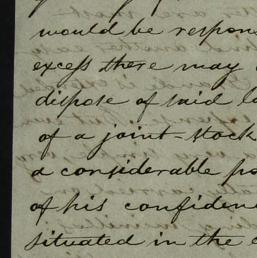 would be respons
excess there may
dispose of said l
of a joint-stock
a considerable po
of his confiden
situated in the e